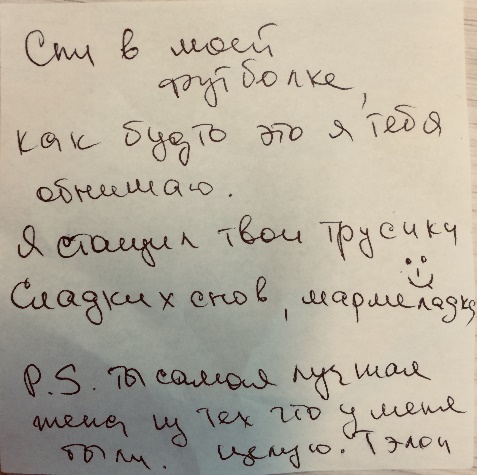 Спи в моей
футболке,
как будто это я тебя
обнимаю.
Я стащил твои трусики
Сладких снов, мармеладка
P.S. ты самая лучшая
жена из тех что у меня
были. целую. Тэлон